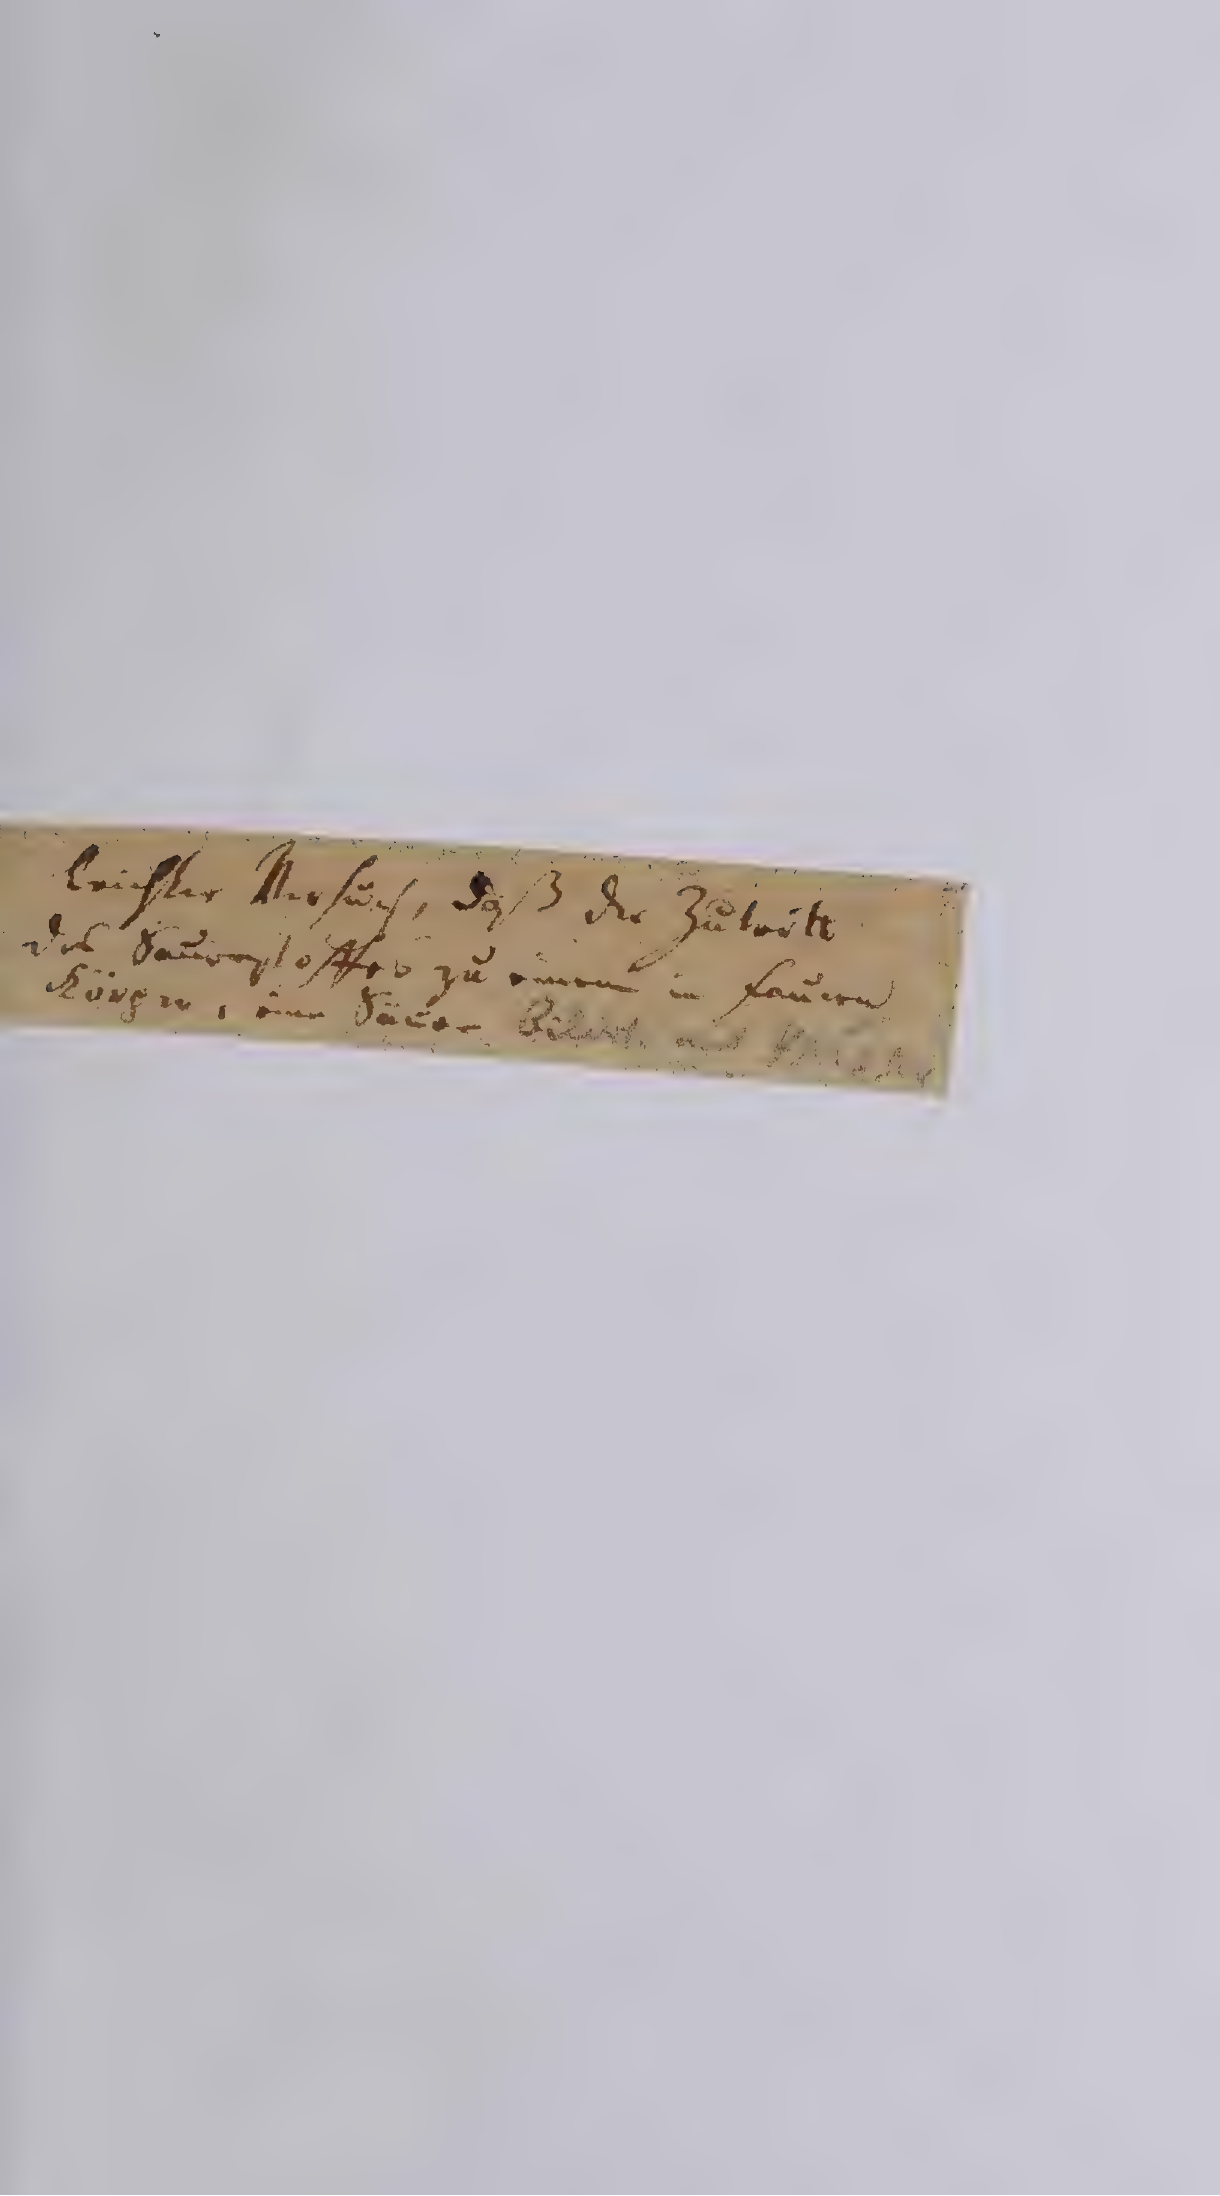 leichter Versuch, daß der Zutritt
des Sauerstoffes zu einem in sauern
Körper, eine Säure